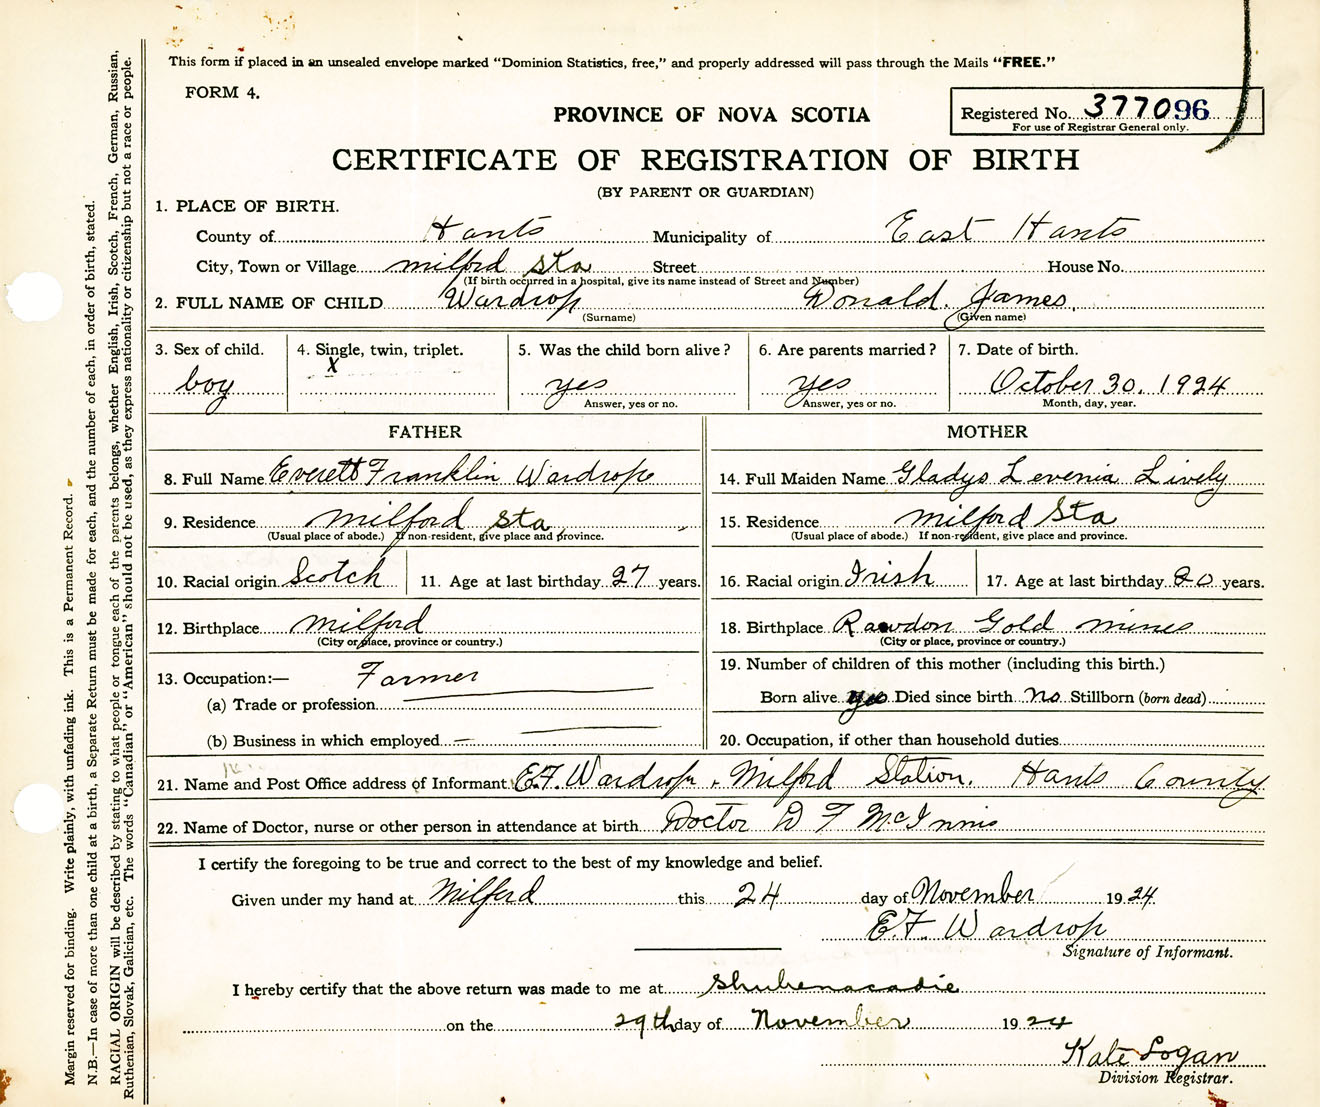 This form if placed in an unsealed envelope marked "Dominion Statistics, free," and properly addressed will pass through the Mails "FREE."
FORM 4.
PROVINCE OF NOVA SCOTIA
Registered No. 377096
For use of Registrar General only.
CERTIFICATE OF REGISTRATION OF BIRTH
(BY PARENT OR GUARDIAN)
1. PLACE OF BIRTH.
County of Hants Municipality of East Hants
City, Town or Village milford sta Street House No.
(If birth occurred in a hospital, give its name instead of Street and Number)
2. FULL NAME OF CHILD Wardrop Donald. James,
(Surname) (Given name)
3. Sex of child. 4. Single, twin, triplet. 5. Was the child born alive? 6. Are parents married? 7. Date of birth.
boy x yes yes October 30, 1924
Answer, yes or no. Answer, yes or no. Month, day, year.
FATHER MOTHER
8. Full Name Everett Franklin Wardrope 14. Full Maiden Name Gladys Levenia Lively
9. Residence milford sta 15. Residence milford Sta
(Usual place of abode.) If non-resident, give place and province. (Usual place of abode.) If non-resident, give place and province.
10. Racial origin Scotch 11. Age at last birthday 27 years. 16. Racial origin Irish 17. Age at last birthday 20 years.
12. Birthplace milford 18. Birthplace Rawdon Gold mines
(City or place, province or country.) (City or place, province or country.)
19. Number of children of this mother (including this birth.)
13. Occupation:— Farmer
Born alive yes Died since birth no Stillborn (born dead)
(a) Trade or profession
(b) Business in which employed — 20. Occupation, if other than household duties
21. Name and Post Office address of Informant E.F. Wardrop, Milford Station, Hants County
22. Name of Doctor, nurse or other person in attendance at birth Doctor D F McInnis
I certify the foregoing to be true and correct to the best of my knowledge and belief.
Given under my hand at Milford this 24 day of November 1924
E.F. Wardrop
Signature of Informant.
I hereby certify that the above return was made to me at Shubenacadie
on the 29th day of November 1924
Kate Logan
Division Registrar.
Margin reserved for binding. Write plainly, with unfading ink. This is a Permanent Record.
N.B.—In case of more than one child at a birth, a Separate Return must be made for each, and the number of each, in order of birth, stated.
RACIAL ORIGIN will be described by stating to what people or tongue each of the parents belongs, whether English, Irish, Scotch, French, German, Russian,
Ruthenian, Slovak, Galician, etc. The words "Canadian" or "American" should not be used, as they express nationality or citizenship but not a race or people.